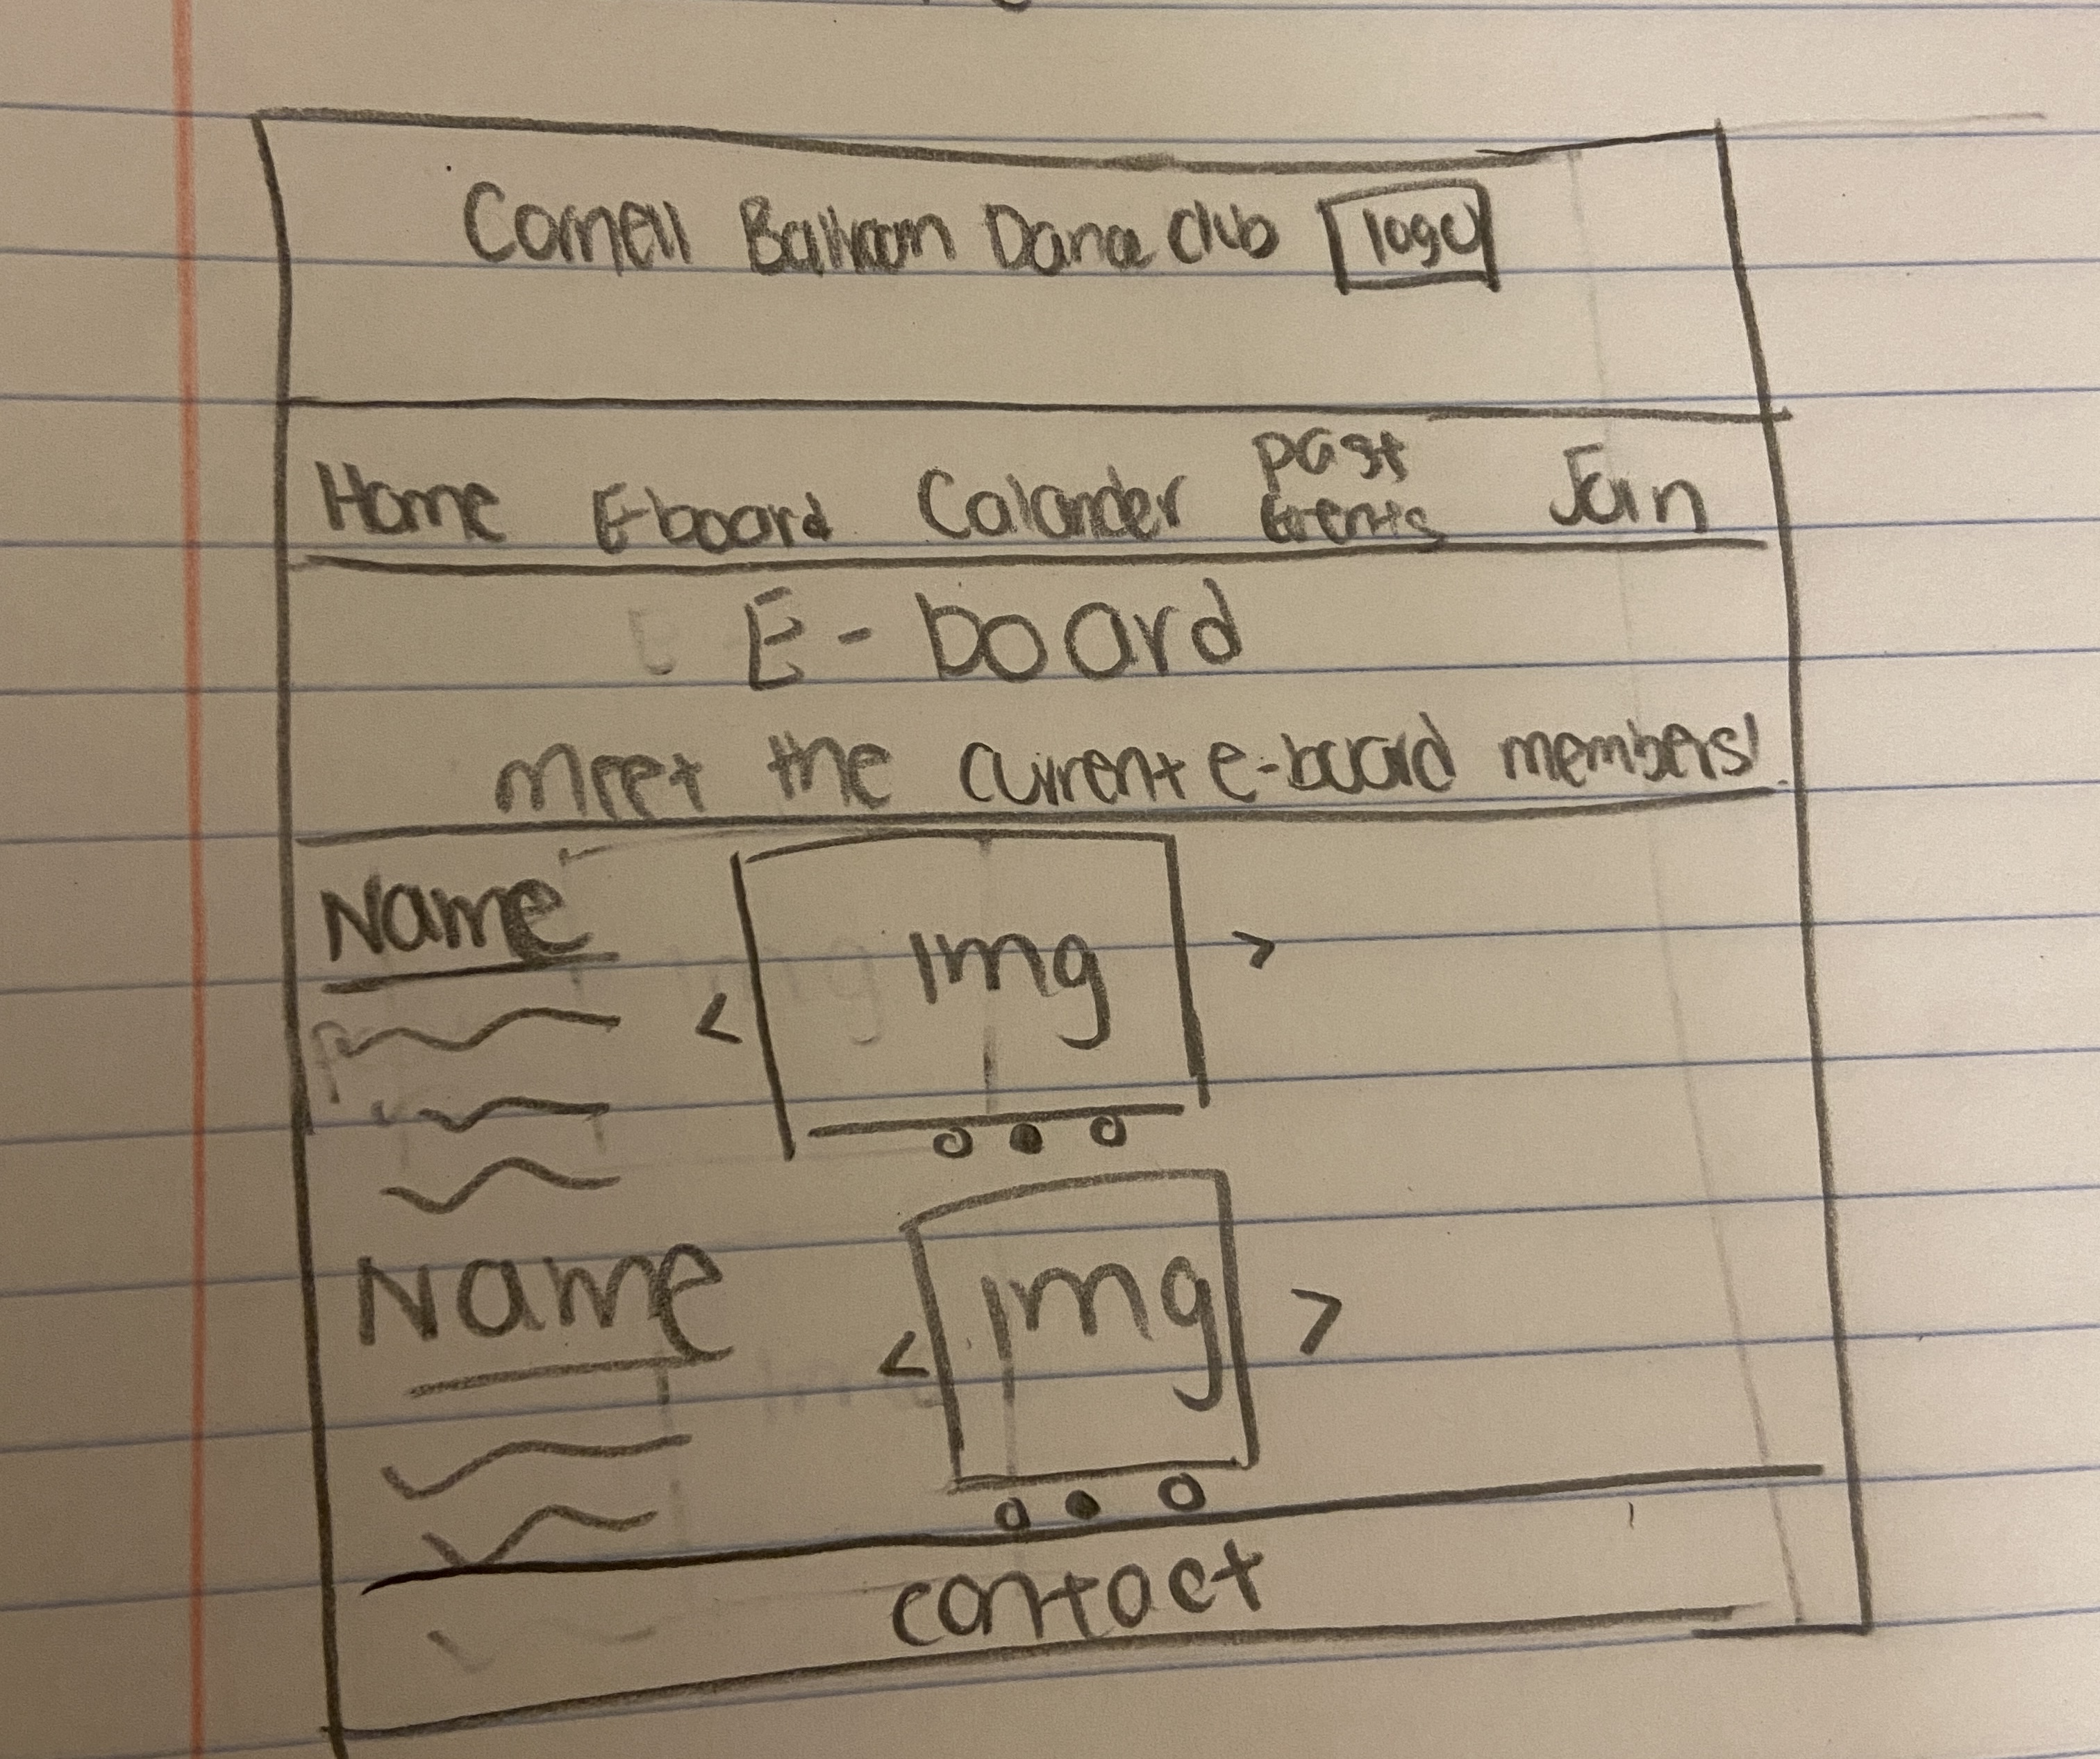 Cornell Ballroom Dance Club logo
Home E-board Calander Past Events Join
E-board
meet the current e-board members!
Name
< img >
Name
< img >
contact